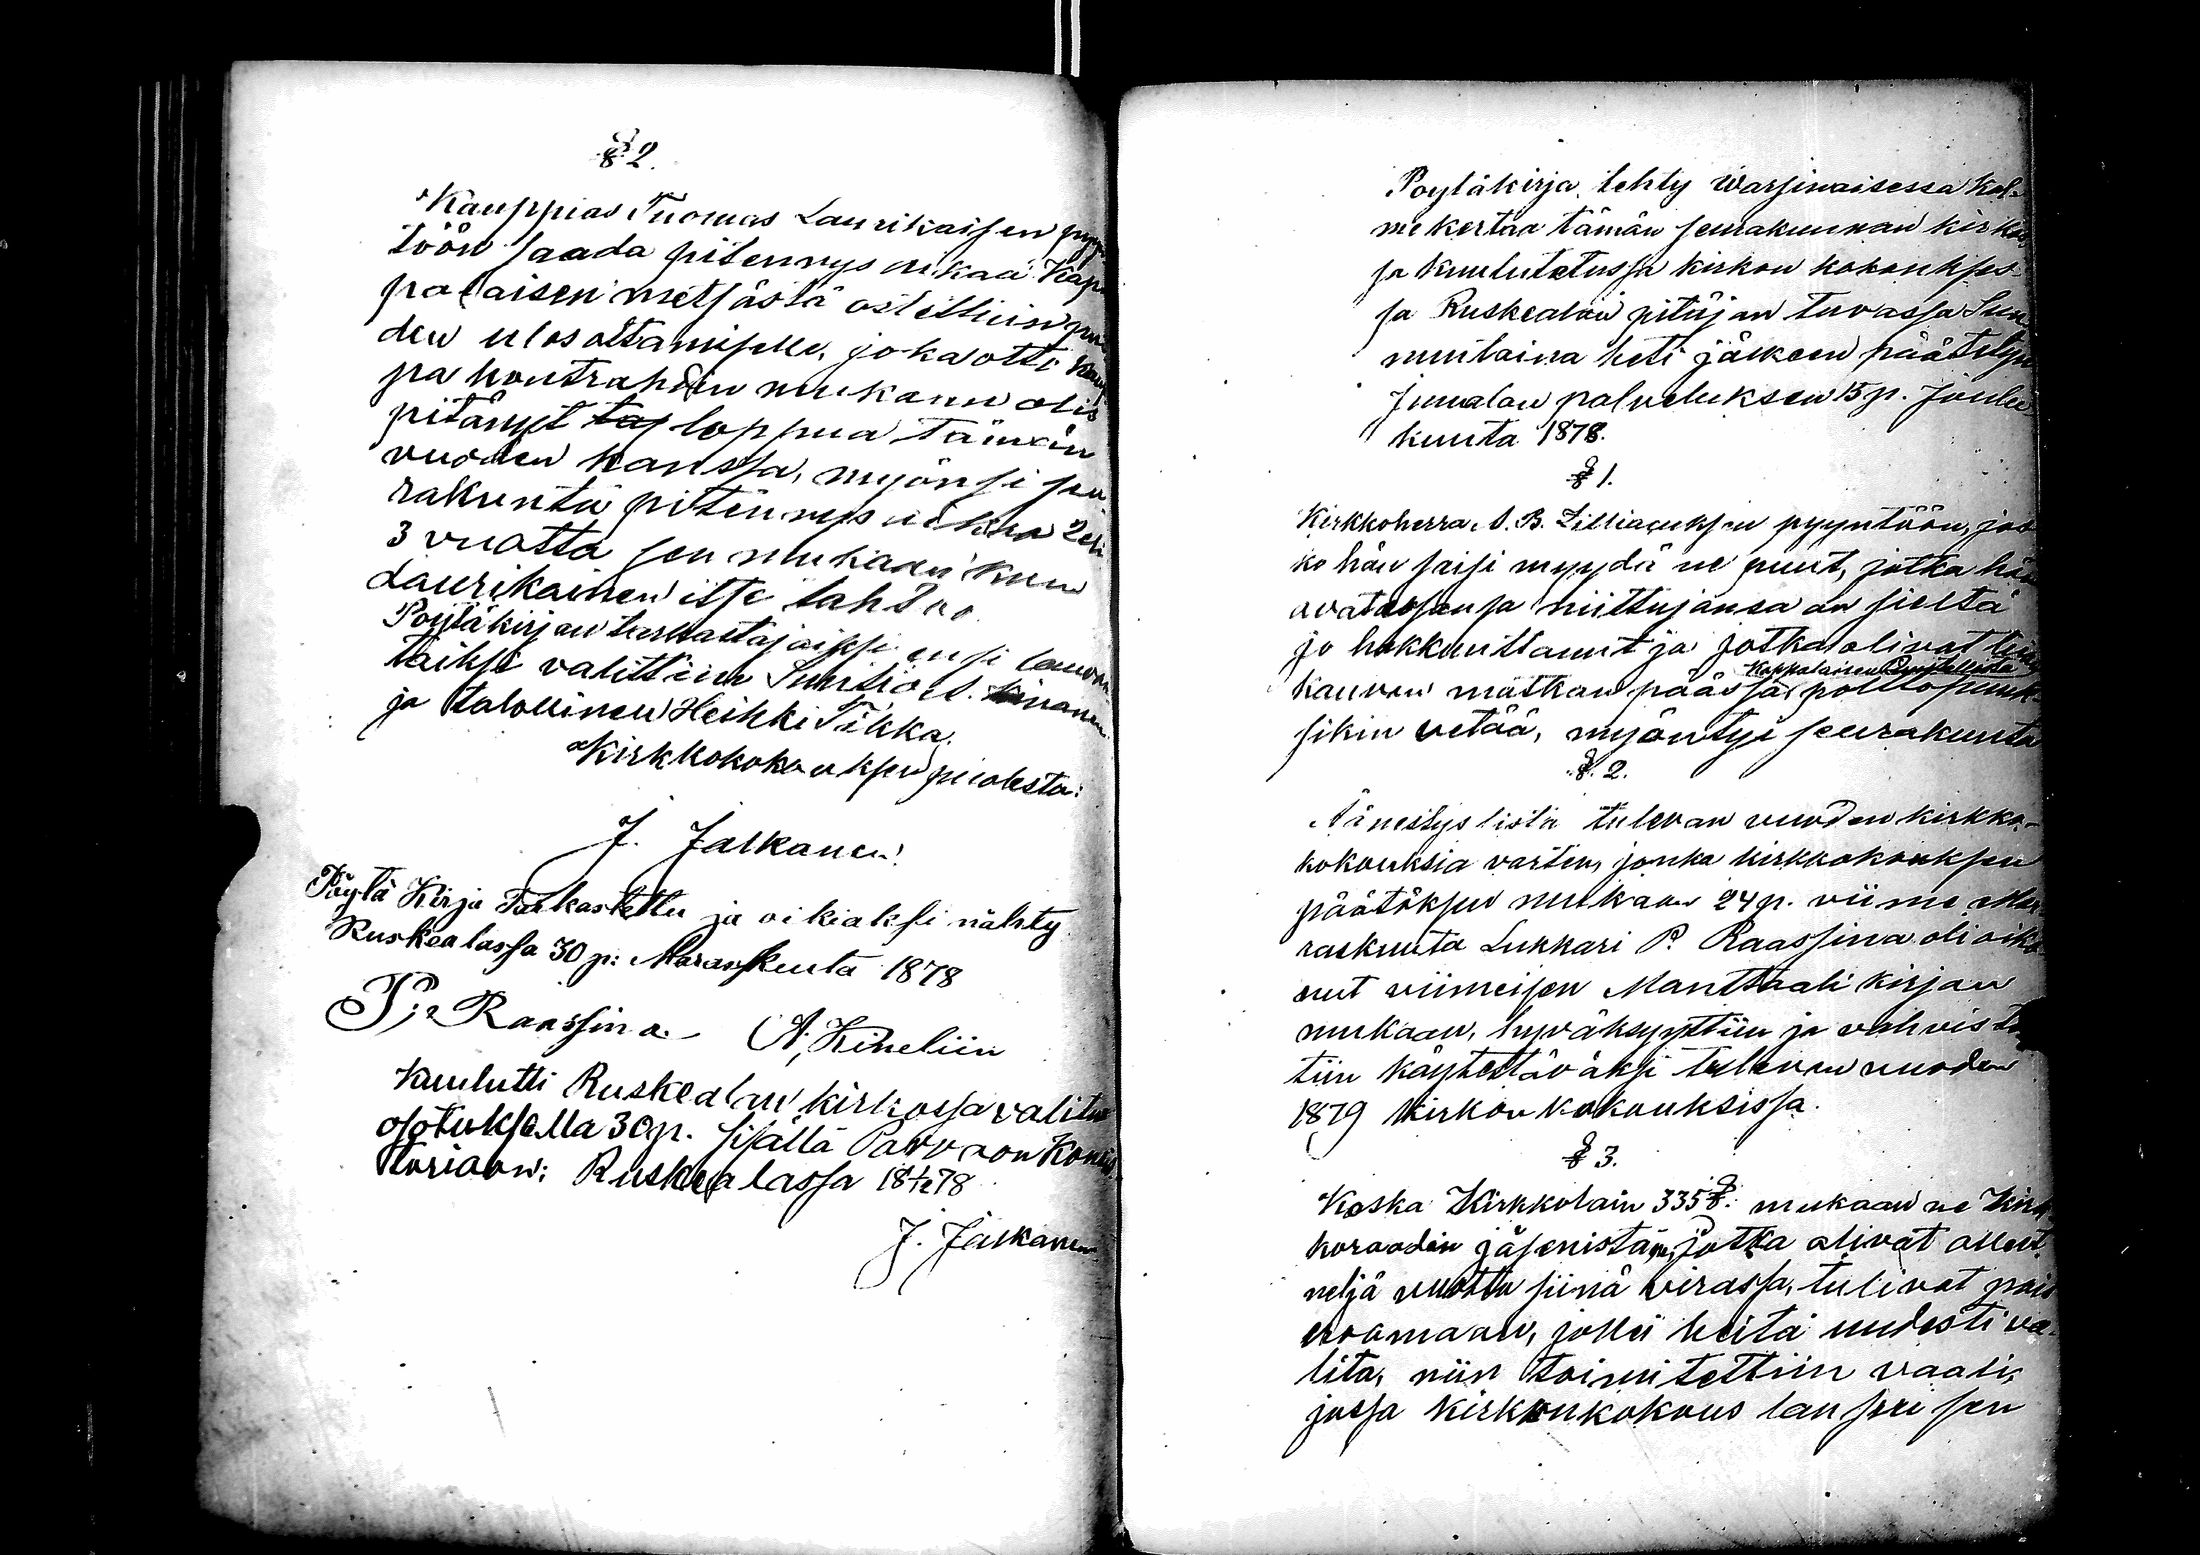 § 2.
Kauppias Tuomas Laurikaisen pyyn
töön saada pitennys aikaa Kap
palaisen metsästä ostettuin pui
den ulosottamiselle, joka otto Kaup
pa kontrahdin mukaan olis
pitänyt loppua tämän
vuoden kanssa, myönsi seu
rakunta pitennys aikaa 2 eli
3 vuotta sen mukaan kuin
Laurikainen itse tahtoo.
Pöytäkirjan tarkastajaiksi ensi
taiksi valittiin Suntio A.
ja talollinen Heikki Tikka.
Kirkkokokouksen puolesta:
J. Jalkanen.
Pöytä Kirja Tarkastettu ja oikiaksi nähty
Ruskealassa 30 p: Marraskuuta 1878
P: Raassina A. Kineliin
Kuulutti Ruskealan kirkossa valitus
osotuksella 30 p. sisällä Porvoon Konsis
torioon: Ruskealassa 18 1/12 78
J. Jalkanen
Poytäkirja, tehty Warsinaisessa kol-
me kertaa tämän seurakunnan kirkos
sa kuulutetussa kirkon kokoukses-
sa Ruskealan pitäjan tuvassa Sun
nuntaina heti jälkeen päätetyn
Jumalan palveluksen 15 p. Joulu
kuuta 1878.
§ 1.
Kirkkoherra A. B. Zilliacuksen pyyntöön, jos
ko hän saisi myydä ne puut, jotka hän
avatessansa niittujansa on sieltä
jo hakkuuttanut ja jotka olivat liian
Kappalaisen Puustellista
kauvan matkan päässä polttopuuk-
sikin vetää, myöntyi seurakunta
§. 2.
Äänestys lista tulevan vuoden kirkko-
kokouksia varten, jonka kirkkokokouksen
päätöksen mukaan 24 p. viime Mar
raskuuta Lukkari P. Raassina oli oiko
nut viimeisen Manttaali kirjan
mukaan, hyväksyttiin ja vahvistet
tiin käytettäväksi tulevan vuoden
1879 kirkon kokouksissa.
§ 3.
Koska Kirkkolain 335 §: mukaan ne Kirk
koraadin jäsenistä, jotka olivat olleet
neljä vuotta siinä virassa, tulivat pois
eroamaan, jollei heitä uudesti va-
lita, niin toimitettiin vaali,
jossa kirkonkokous lausui sen